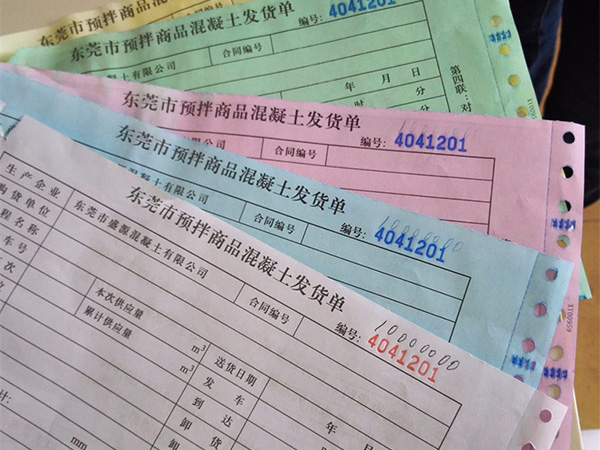 东莞市预拌商品混凝土发货单
编号:
4041201
合同编号
土有限公司
年 月 日
时 分
第四联:对
东莞市预拌商品混凝土发货单
合同编号
编号: 4041201
东莞市预拌商品混凝土发货单
土有限公司
合同编号
10000000
编号: 4041201
东莞市预拌商品混凝土发货单
生产企业
东莞市盛源混凝土有限公司
合同编号
10000000
编号: 4041201
购货单位
程名称
车号
次
本次供应量
m³
送货日期
年
累计供应量
m³
发车
到达
卸货
计:
mm
mm
XT00959